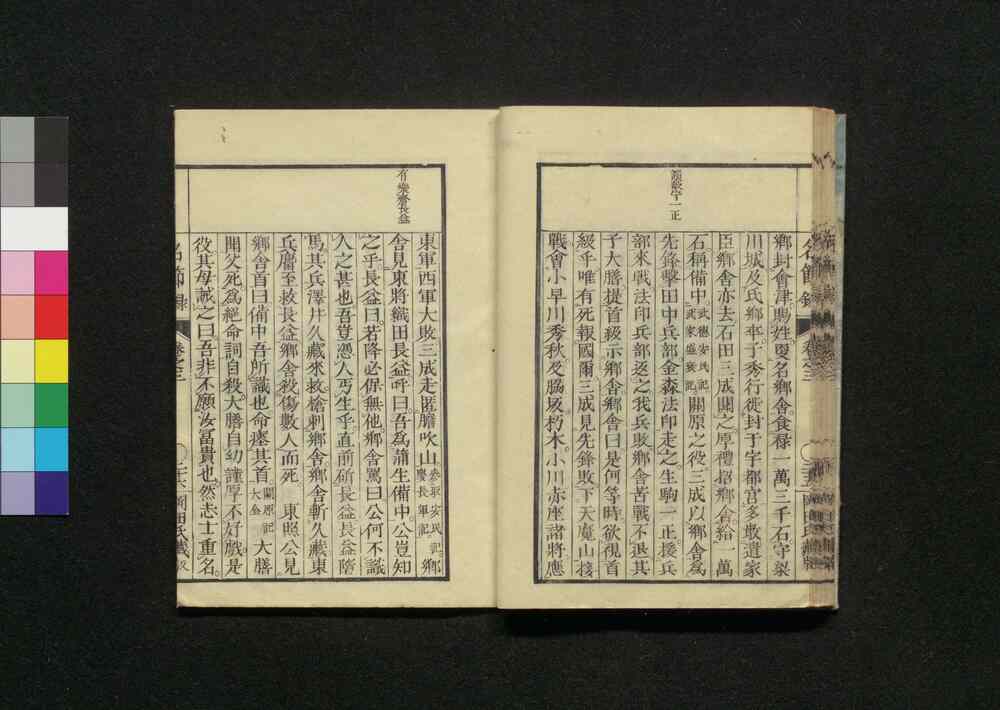 鄉封會津賜姓更名鄉舍食祿一萬三千石守梁
川城及氏鄉卒子秀行徙封于宇都宮多散遣家
臣鄉舍亦去石田三成聞之厚禮招鄉舍給一萬
石稱備中武德安民記武家盛衰記關原之役三成以鄉舍爲
先鋒擊田中兵部金森法印走之生駒一正援兵
部來戰法印兵部返之我兵敗鄉舍苦戰不退其
子大膳提首級示鄉舍鄉舍曰是何等時欲視首
級乎唯有死報國爾三成見先鋒敗下天魔山接
戰會小早川秀秋及脇坂朽木小川赤座諸將應
一正
東軍西軍大敗三成走匿膽吹山參取安民記慶長軍記鄉
舍見東將織田長益呼曰吾爲蒲生備中公豈知
之乎長益曰若降必保無他鄉舍罵曰公何不識
人之甚也吾豈憑人丐生乎直前斫長益長益墮
馬其兵澤井久藏來救槍刺鄉舍鄉舍斬久藏東
兵麕至救長益鄉舍殺傷數人而死東照公見
鄉舍首曰備中吾所識也命瘞其首關原記大全大膳
聞父死爲絕命詞自殺大膳自幼謹厚不好戲是
役其母誡之曰吾非不願汝富貴也然志士重名
有樂齋長益
名節錄
卷之三